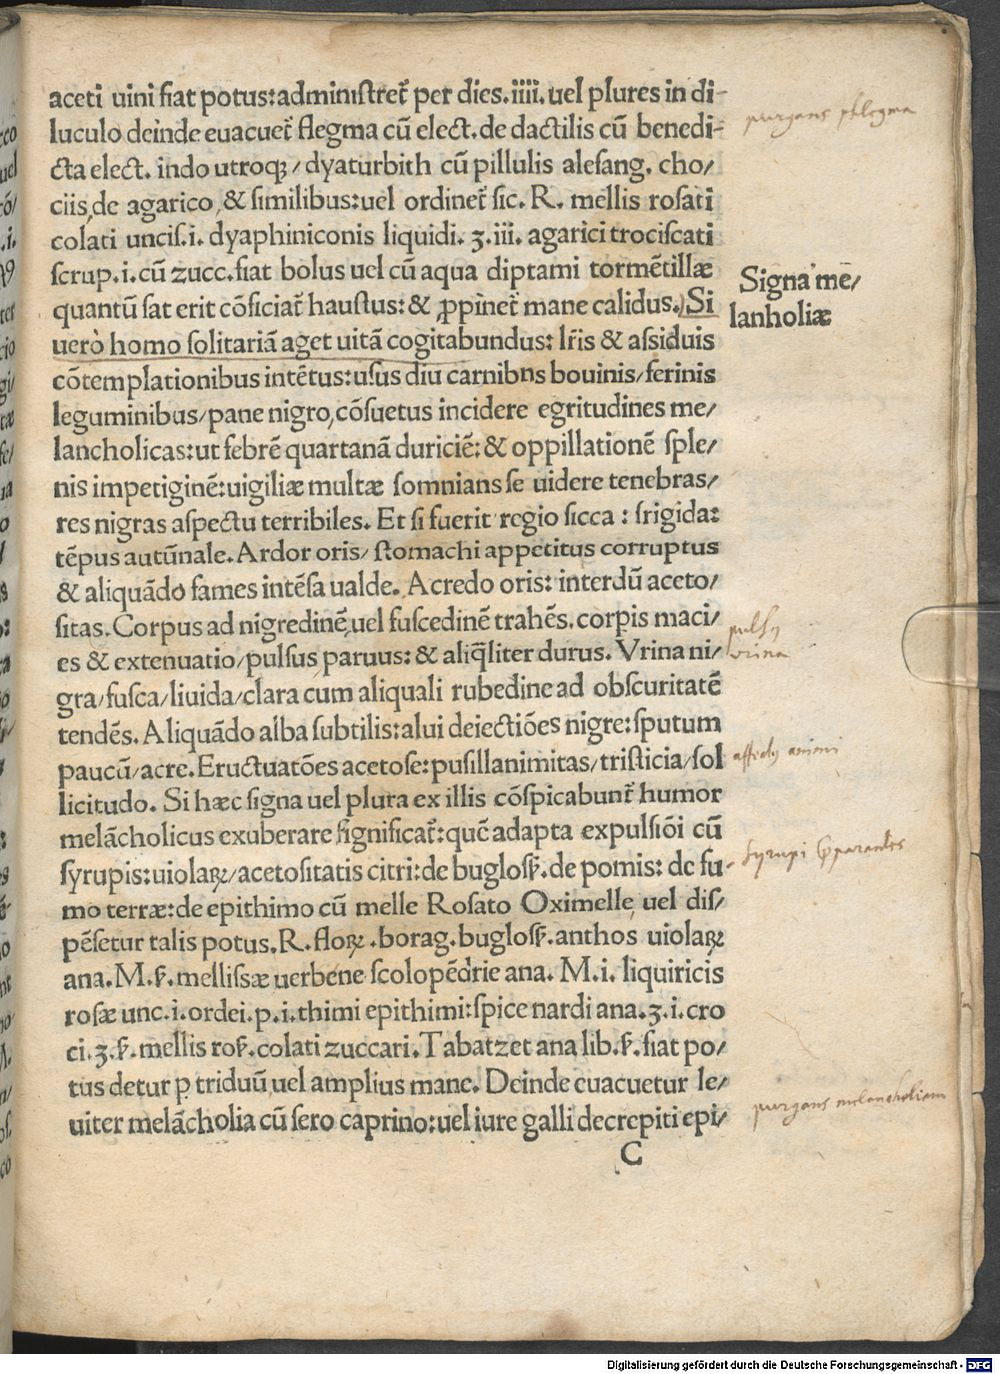 aceti uini fiat potus:adminiſtret̄ per dies.iiii.uel plures in di-
luculo deinde euacuet̄ flegma cū elect.de dactilis cū benedi-
cta elect. indo utroqꝫ/dyaturbith cū pillulis aleſang. cho/
ciis,de agarico,& ſimilibus:uel ordinet̄ ſic. R. mellis roſati
colati unciſ.i. dyaphiniconis liquidi. ʒ.iii. agarici trociſcati
ſcrup.i.cū zucc.fiat bolus uel cū aqua diptami tormētillæ
quantū ſat erit cōficiat̄ hauſtus:& ꝓpinet̄ mane calidus.)Si
uerò homo ſolitariā aget uitā cogitabundus: lr̄is & aſsiduis
cōtemplationibus intētus:uſus diu carnibns bouinis/ferinis
leguminibus/pane nigro,cōſuetus incidere egritudines me/
lancholicas:ut febrē quartanā duriciē:& oppillationē ſple/
nis impetiginē:uigiliæ multæ ſomnians ſe uidere tenebras/
res nigras aſpectu terribiles. Et ſi fuerit regio ſicca : frigida:
tēpus autūnale.Ardor oris/ ſtomachi appetitus corruptus
& aliquādo fames intēſa ualde. Acredo oris: interdū aceto/
ſitas.Corpus ad nigredinē,uel fuſcedinē trahēs.corpis maci/
es & extenuatio/pulſus paruus: & aliq̄liter durus. Vrina ni/
gra/fuſca/liuida/clara cum aliquali rubedine ad obſcuritatē
tendēs.Aliquādo alba ſubtilis:alui deiectiōes nigre:ſputum
paucū/acre.Eructuatōes acetoſe:puſillanimitas/triſticia/ſol
licitudo. Si hæc ſigna uel plura ex illis cōſpicabunt̄ humor
melācholicus exuberare ſignificat̄:quē adapta expulſiōi cū
ſyrupis:uiolaꝝ/acetoſitatis citri:de bugloſſ̄.de pomis: de fu-
mo terræ:de epithimo cū melle Roſato Oximelle, uel diſ/
pēſetur talis potus.R.floꝝ.borag.bugloſſ̄.anthos uiolaꝝ
ana.M.ſ̄.mellisſæ uerbene ſcolopēdrie ana. M.i. liquiricis
roſæ unc.i.ordei.p.i.thimi epithimi:ſpice nardi ana.ʒ.i.cro
ci.ʒ.ſ̄.mellis roſ̄.colati zuccari.Tabatzet ana lib.ſ̄.fiat po/
tus detur ꝑ triduū uel amplius mane. Deinde euacuetur le/
uiter melācholia cū ſero caprino:uel iure galli decrepiti epi/
C
purgans phlegma
Signa me/
lanholiæ
pulsy
vrina
affectus animi
Syrupi p̄parantes
purgans melancholiam
Digitalisierung gefördert durch die Deutsche Forschungsgemeinschaft - DFG